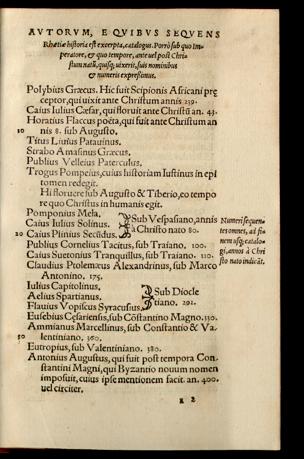 AVTORVM, E QVIBVS SEQVENS
Rhætiæ historia est excerpta, catalogus. Porrò sub quo Im=
peratore, & quo tempore, ante uel post Chri=
stum natū, quisq; uixerit, suis nominibus
& numeris expreßimus.
Polybius Græcus. Hic fuit Scipionis Africani præ
ceptor, qui uixit ante Christum annis 239.
Caius Iulius Cæsar, qui floruit ante Christū an. 43.
Horatius Flaccus poëta, qui fuit ante Christum an
10 nis 8. sub Augusto.
Titus Liuius Patauinus.
Strabo Amasinus Græcus.
Publius Velleius Paterculus.
Trogus Pompeius, cuius historiam Iustinus in epi
tomen redegit.
Hi floruere sub Augusto & Tiberio, eo tempo
re quo Christus in humanis egit.
Pomponius Mela.
Caius Iulius Solinus.
20 Caius Plinius Secūdus.
Sub Vespasiano, annis
à Christo nato 80.
Numeri sequen=
tes omnes, ad fi=
nem usq; catalo=
gi, annos à Chri
sto nato indicāt.
Publius Cornelius Tacitus, sub Traiano. 100.
Caius Suetonius Tranquillus, sub Traiano. 110.
Claudius Ptolemæus Alexandrinus, sub Marco
Antonino. 175.
Iulius Capitolinus.
Aelius Spartianus.
Flauius Vopiscus Syracusius.
Sub Diocle
tiano. 292.
Eusebius Cęsariensis, sub Cōstantino Magno. 330.
Ammianus Marcellinus, sub Constantio & Va-
30 lentiniano. 360.
Eutropius, sub Valentiniano. 380.
Antonius Augustus, qui fuit post tempora Con-
stantini Magni, qui Byzantio nouum nomen
imposuit, cuius ipse mentionem facit. an. 400.
uel circiter.
a 2